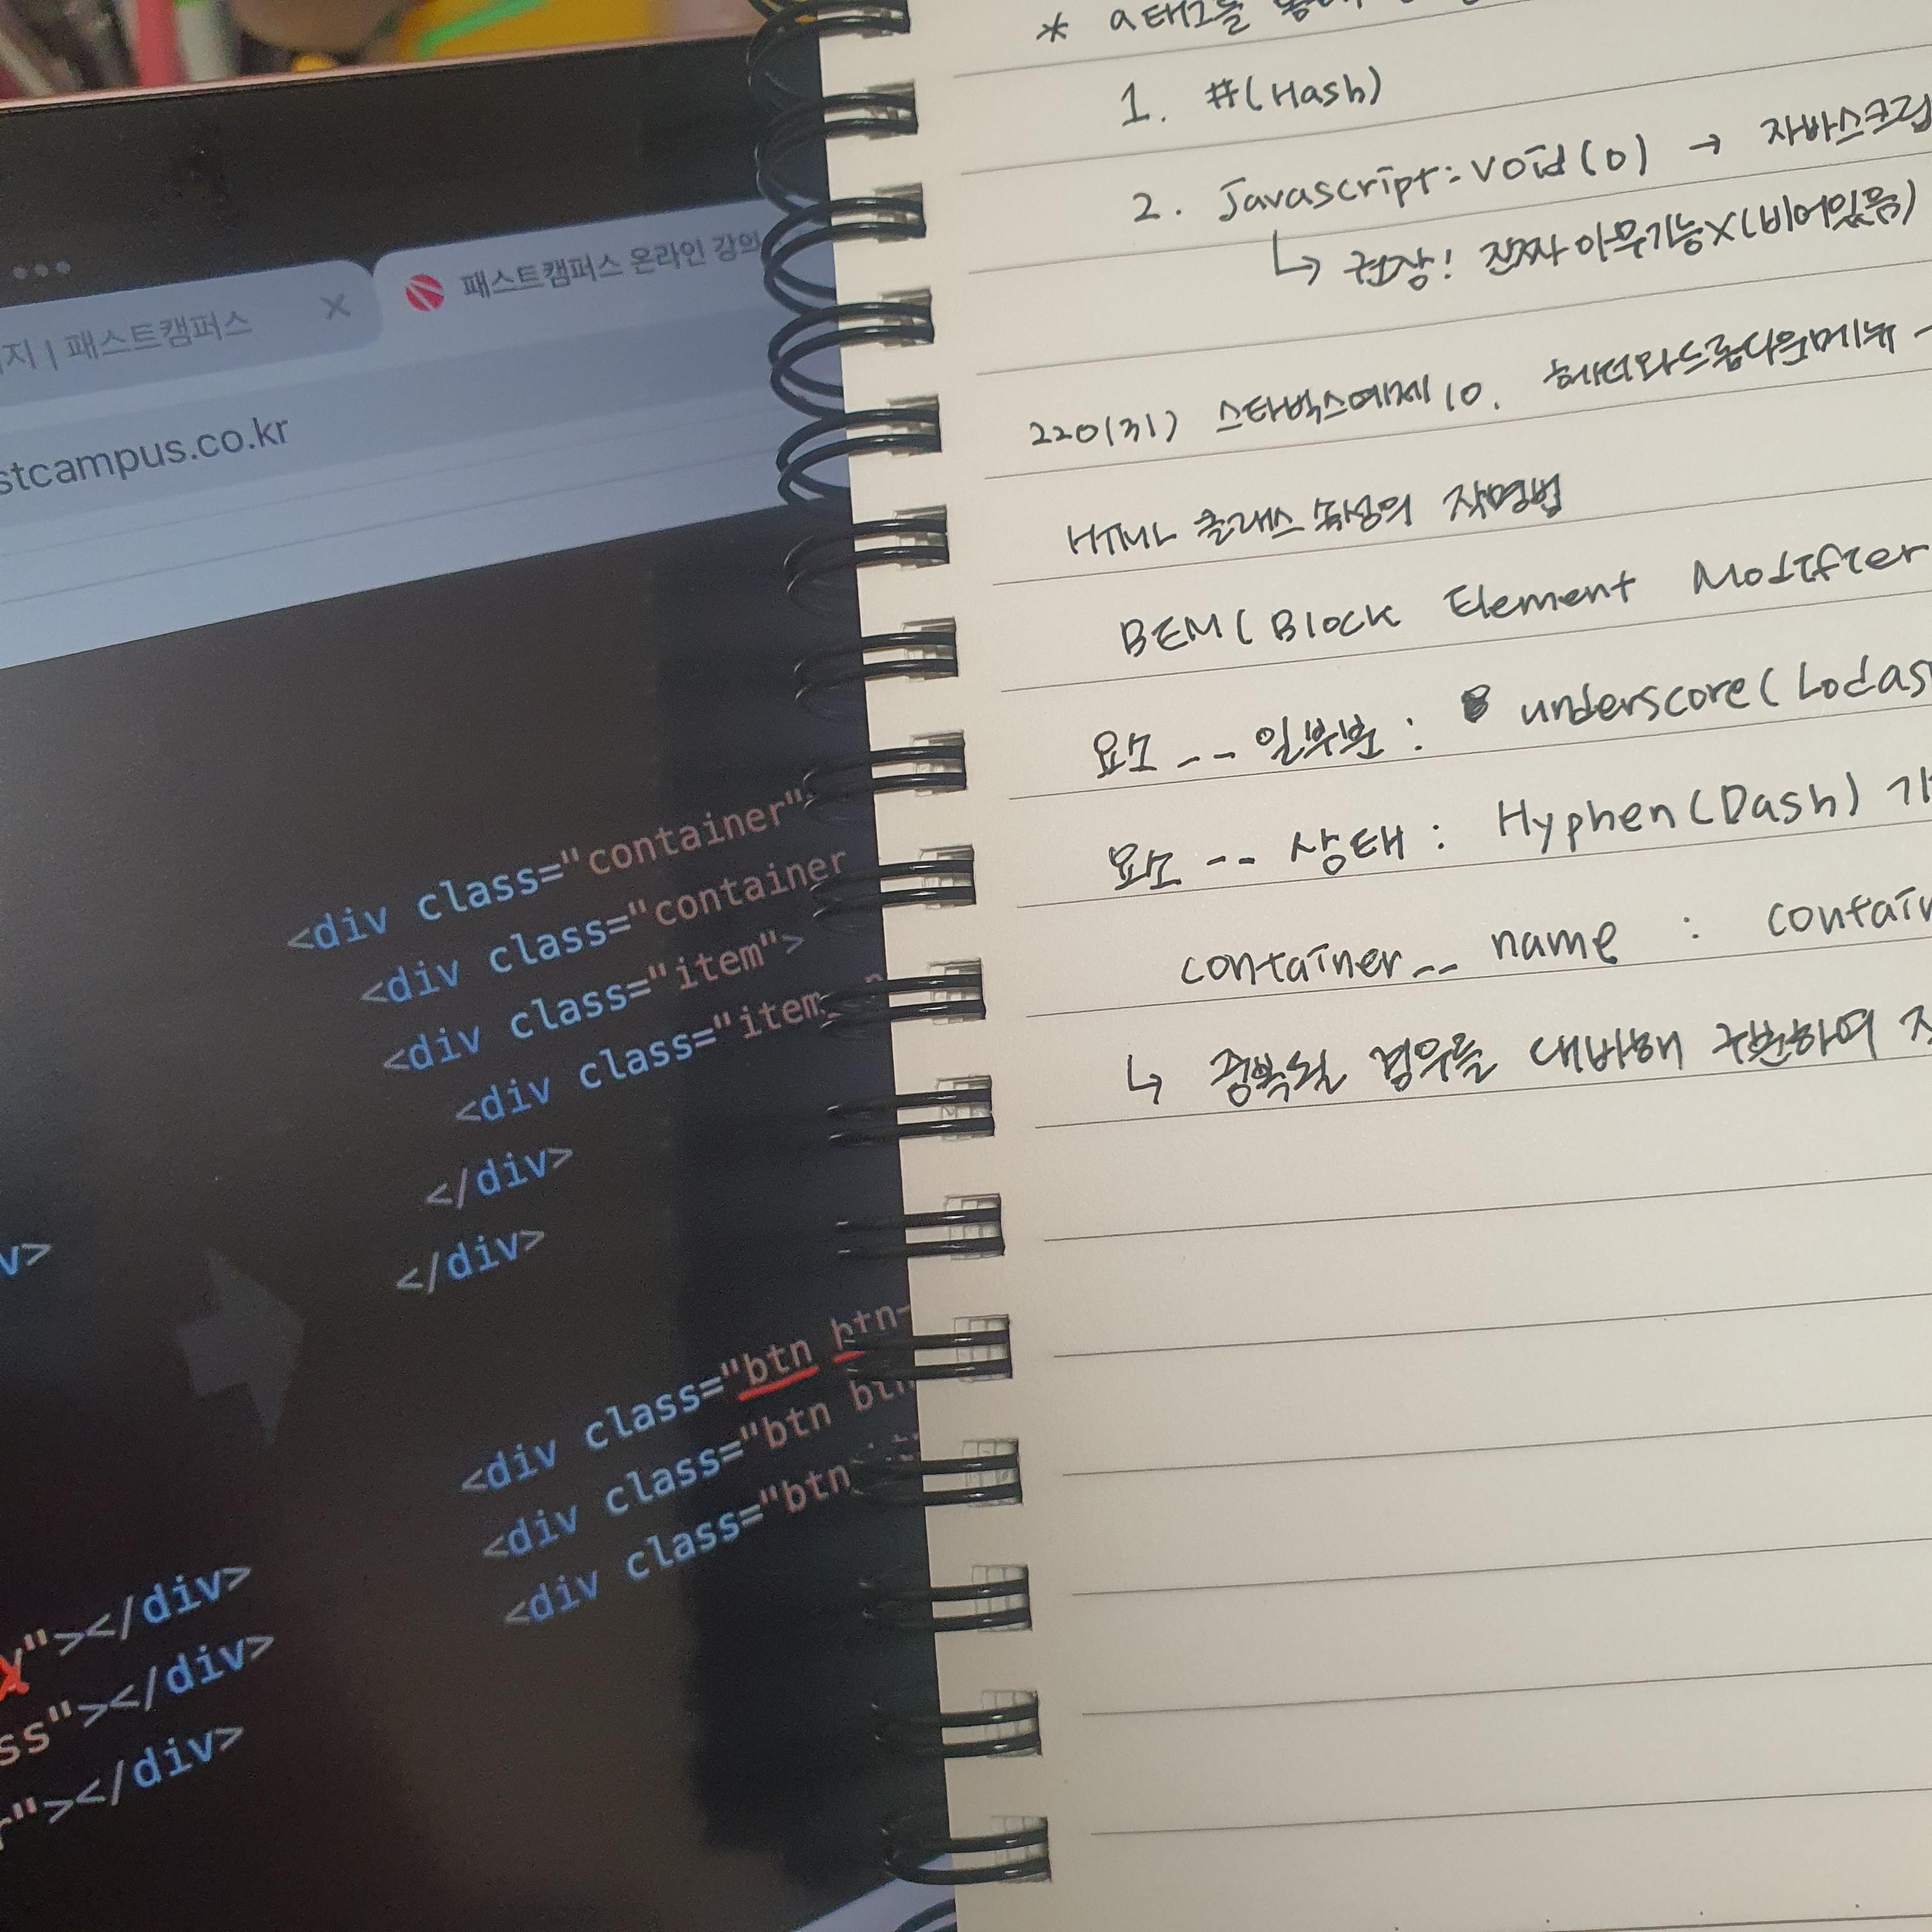 지 | 패스트캠퍼스
패스트캠퍼스 온라인 강의
stcampus.co.kr
<div class="container"
<div class="container
<div class="item">
<div class="item
</div>
</div>
v>
<div class="btn btn-
<div class="btn btn
<div class="btn
"></div>
ss"></div>
r"></div>
* a태그를
1. #(Hash)
2. Javascript:void(0) → 자바스크립
↳ 권장! 진짜 아무기능X(비어있음)
220131) 스타벅스예제 10. 헤더와드롭다운메뉴 -
HTML 클래스 속성의 작명법
BEM(Block Element Modifier
요소 __ 일부분 : underscore(Lodas
요소 -- 상태 : Hyphen(Dash) 기
container__ name : contain
↳ 중복될 경우를 대비해 구분하여